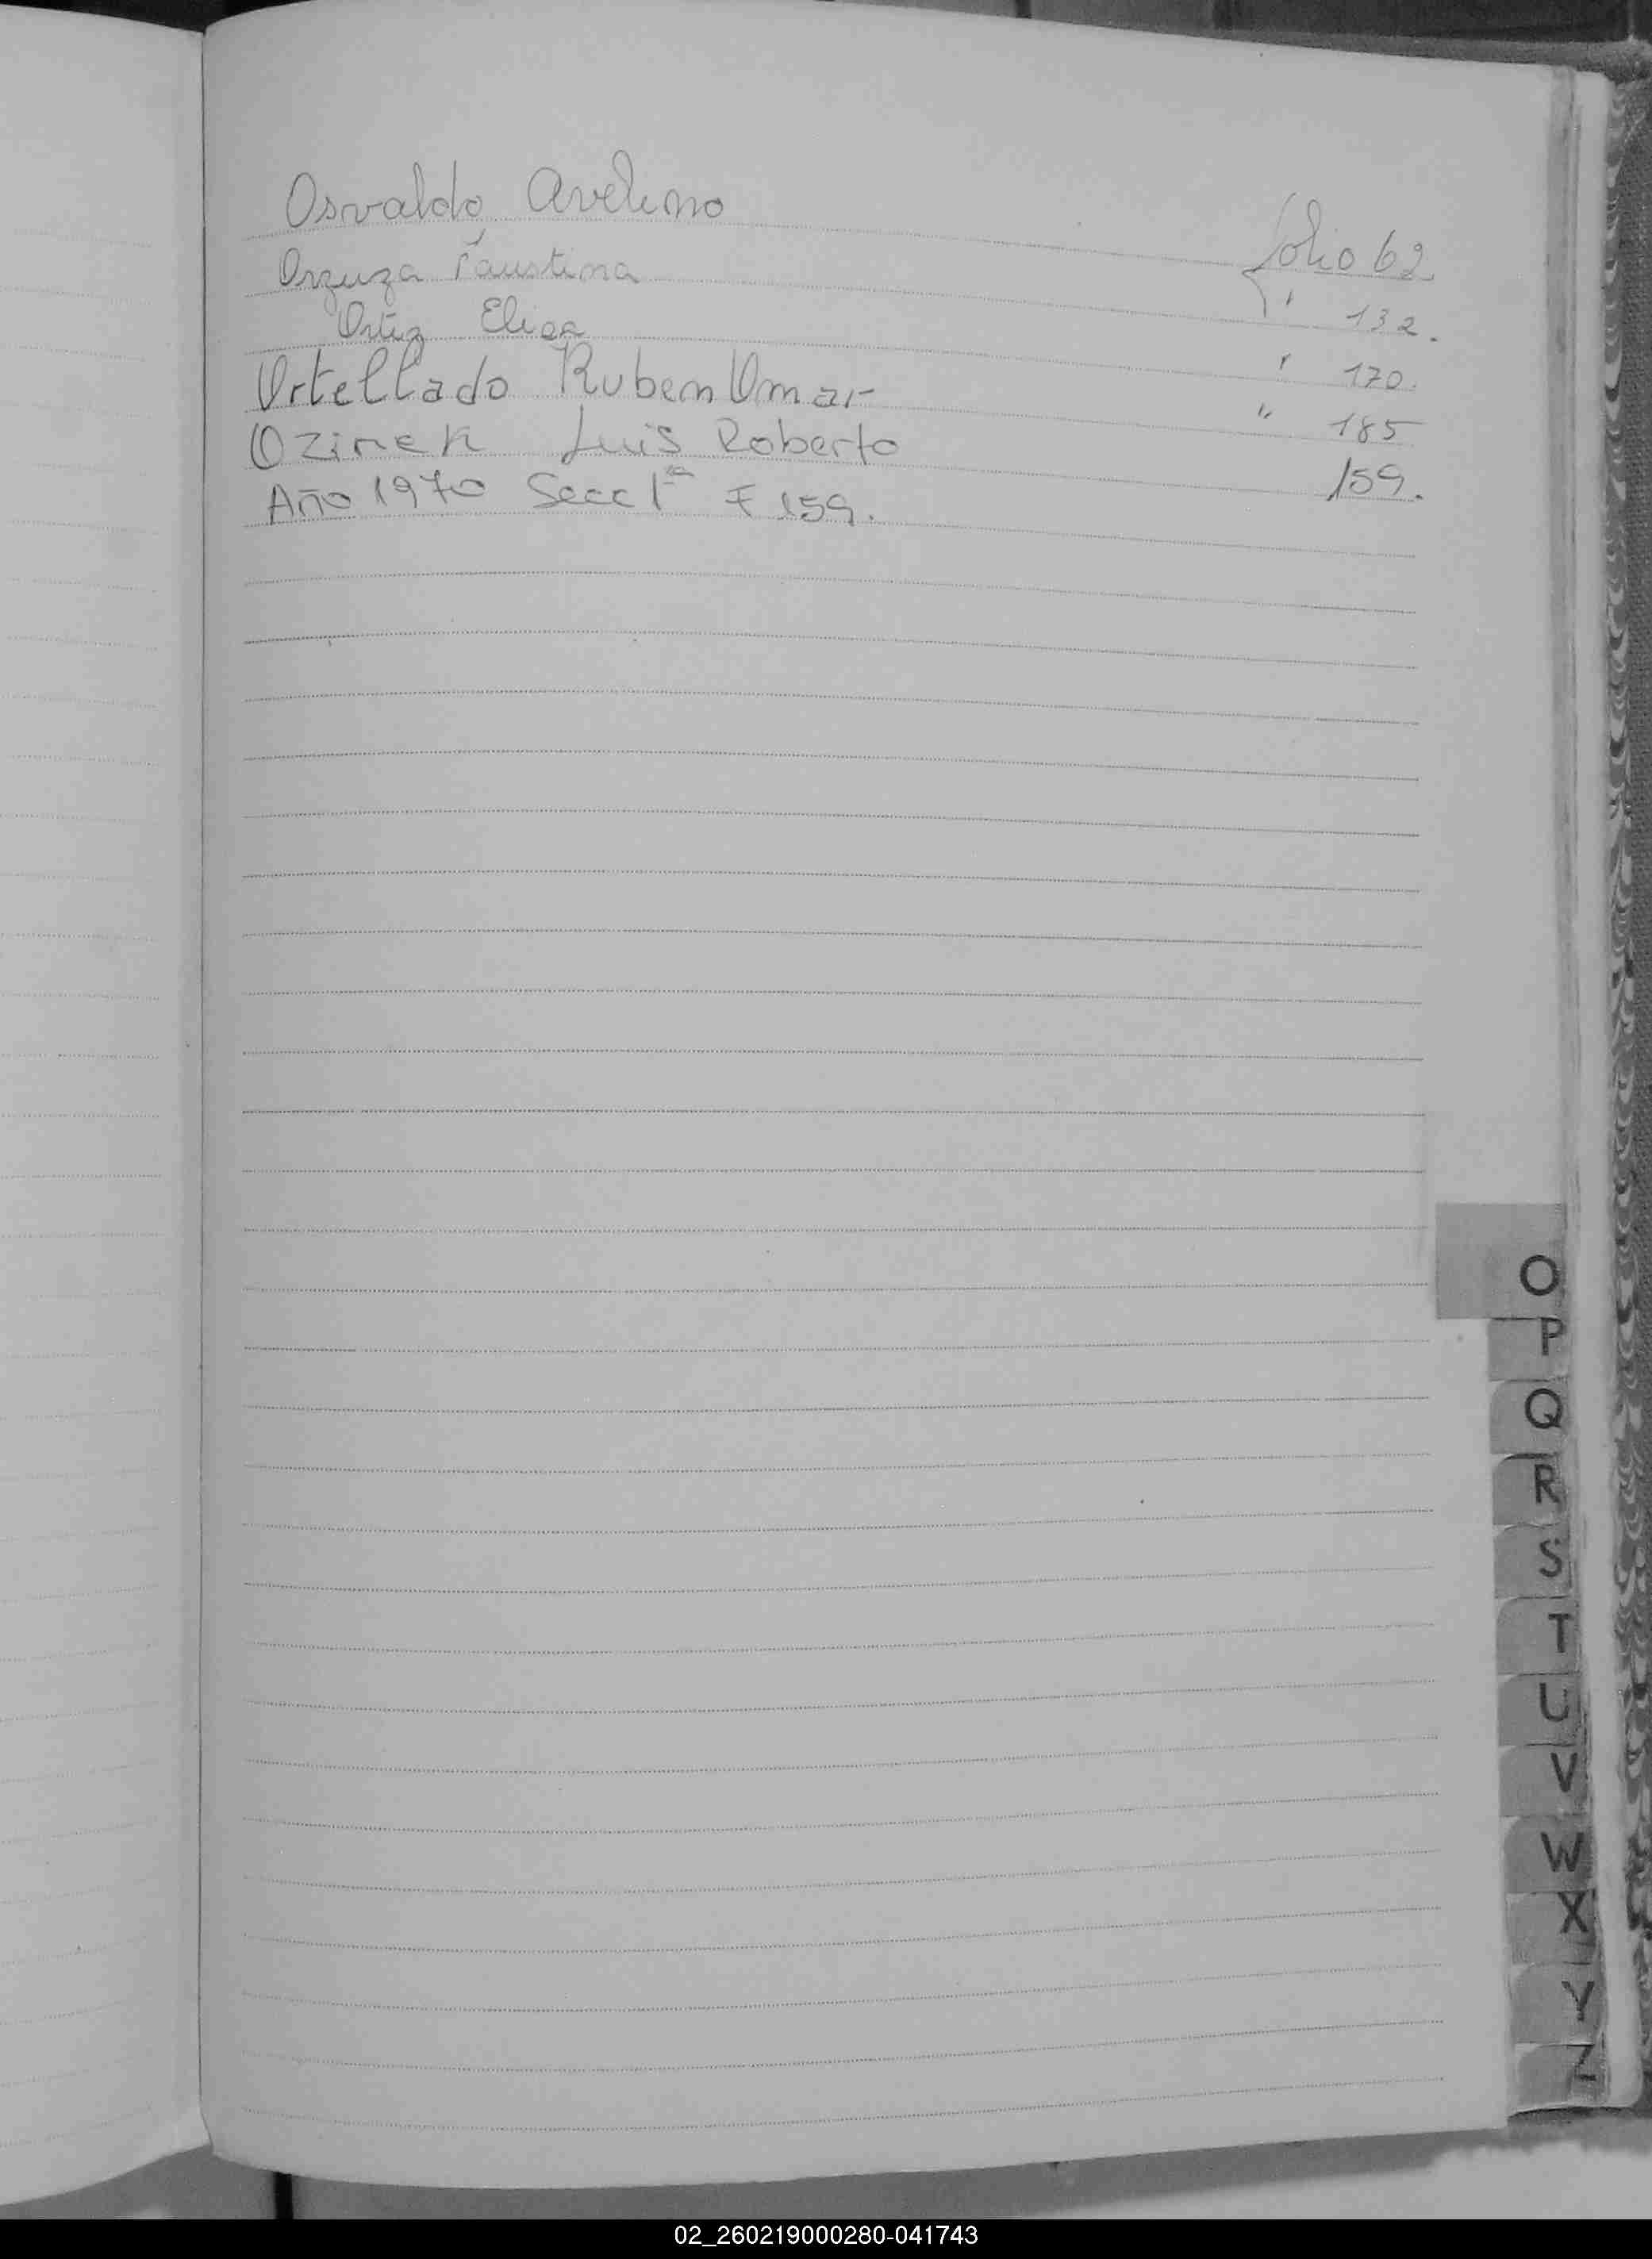 Osvaldo Avelino folio 62
Orzuza Faustina " 132.
Ortiz Elisa " 170.
Ortellado Ruben Omar " 185
Ozinek Luis Roberto 159.
Año 1970 Secc 1ra F 159.
O
P
Q
R
S
T
U
V
W
X
Y
Z
02_260219000280-041743